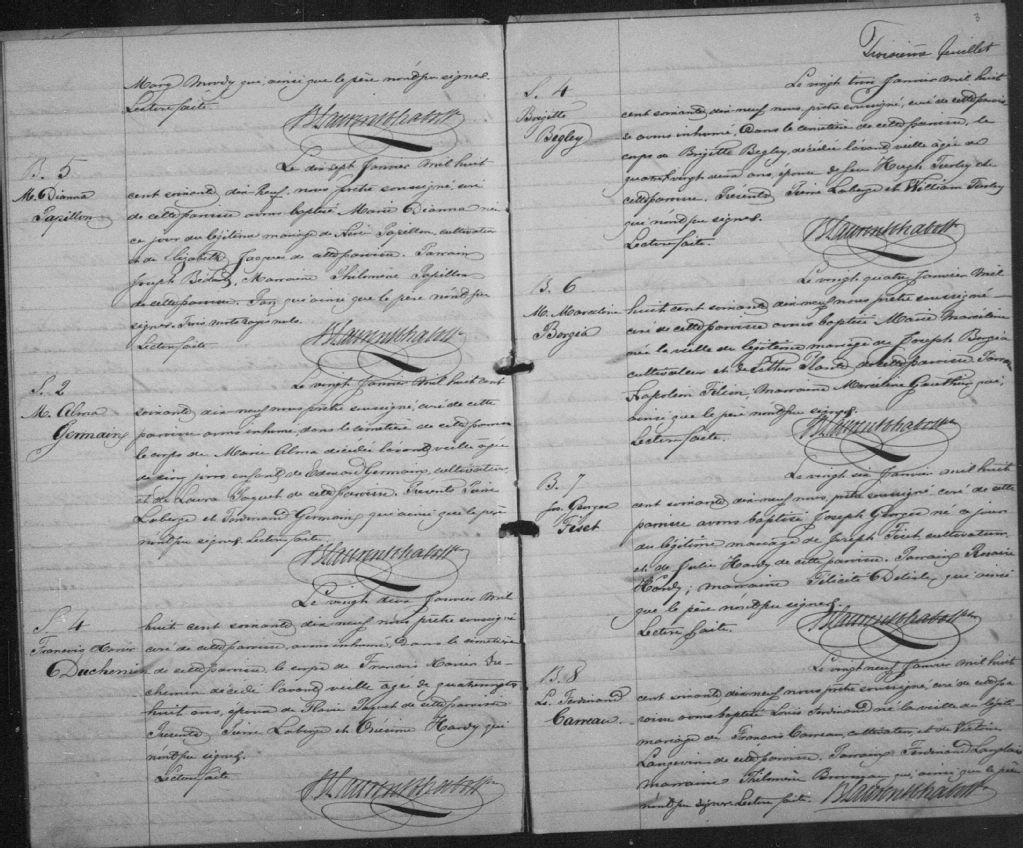 Mary Moody qui, ainsi que le père n'ont pu signer.
Lecture faite.
B. 5
M. Dianna
Papillon
Le dix sept Janvier mil huit
cent soixante dix neuf, nous prêtre soussigné curé
de cette paroisse avons baptisé Marie Dianna née
ce jour du légitime mariage de Papillon, cultivateur
et de Elizabeth Jacques de cette paroisse. Parrain
Joseph Marraine Philomène Papillon
de cette paroisse. qui ainsi que le père n'ont pu
signer. Trois mots rayés nuls.
Lecture faite.
S. 2
M. Alma
Germain
Le vingt Janvier mil huit cent
soixante dix-neuf nous prêtre soussigné, curé de cette
paroisse avons inhumé, dans le cimetière de cette paroisse
le corps de Marie Alma décédée l'avant veille âgée
de cinq enfant de Germain, cultivateur
et de Laura Paquet de cette paroisse. Présents
Laberge et Ferdinand Germain qui ainsi que le père
n'ont pu signer. Lecture faite.
S. 4
François Xavier
Duchemin
Le vingt deux Janvier mil
huit cent soixante dix-neuf nous prêtre soussigné
curé de cette paroisse, avons inhumé, dans le cimetière
de cette paroisse, le corps de François Xavier Du-
chemin décédé l'avant veille âgé de quatrevingt
huit ans, époux de Paquet de cette paroisse
Présents Laberge et Onésime Hardy qui
n'ont pu signer.
Lecture faite
3
Troisième feuillet
S. 4
Brigitte
Begley
Le vingt trois Janvier mil huit
cent soixante dix neuf nous, prêtre soussigné, curé de cette paroisse
avons inhumé, dans le cimetière de cette paroisse, le
corps de Brigitte Begley, décédée l'avant veille âgée de
quatre vingt deux ans, épouse de feu Hugh de
cette paroisse. Présents Laberge et William
qui n'ont pu signer.
Lecture faite.
B. 6
M. Marceline
Borgia
Le vingt quatre Janvier mil
huit cent soixante dix neuf nous prêtre soussigné
curé de cette paroisse avons baptisé Marie Marceline
née la veille du légitime mariage de Joseph Borgia
cultivateur et de Esther Plante de cette paroisse. Parrain
Napoléon marraine Marceline Gauthier qui,
ainsi que le père n'ont pu signer.
Lecture faite.
B. 7
Jos. George
Fiset
Le vingt six Janvier mil huit
cent soixante dix neuf nous, prêtre soussigné curé de cette
paroisse avons baptisé Joseph George né ce jour
du légitime mariage de Joseph Fiset cultivateur
et de Julie Hardy de cette paroisse. Parrain
Hardy; marraine Félicité Delisle, qui ainsi
que le père n'ont pu signer.
Lecture faite.
B. 8
Ls. Ferdinand
Careau.
Le vingt neuf Janvier mil huit
cent soixante dix neuf, nous prêtre soussigné, curé de cette pa
roisse avons baptisé Louis Ferdinand né la veille du légitime
mariage de François Careau, cultivateur, et de
Langevin de cette paroisse. Parrain Ferdinand Langlais
marraine Philomène qui, ainsi que le père
n'ont pu signer. Lecture faite.